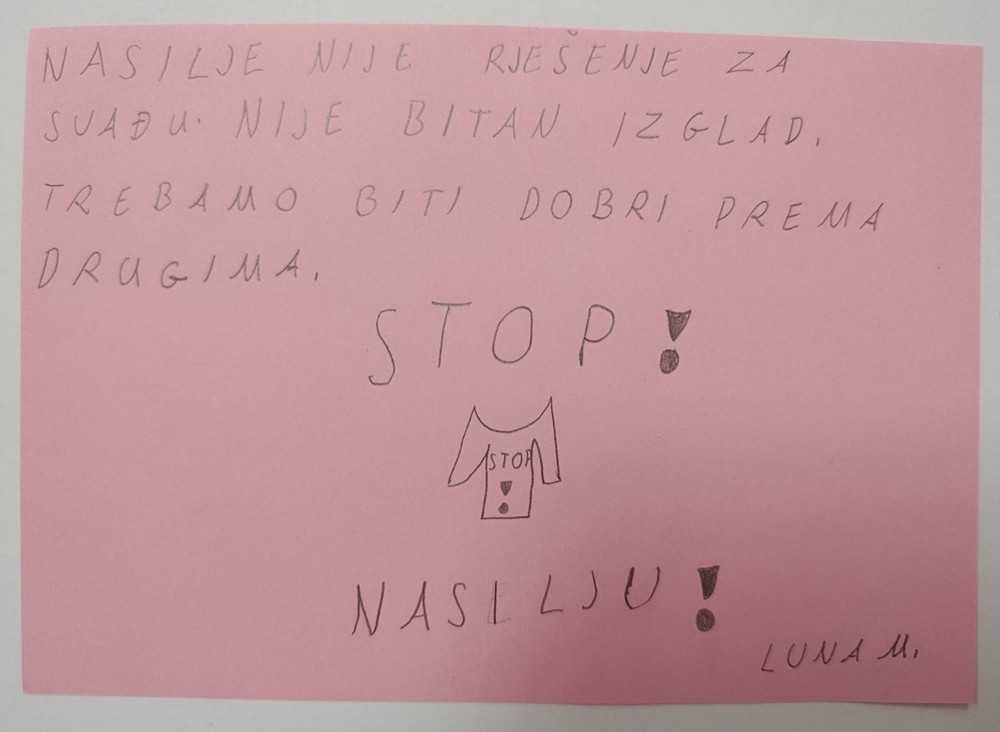 NASILJE NIJE RJEŠENJE ZA
SVAĐU. NIJE BITAN IZGLAD.
TREBAMO BITI DOBRI PREMA
DRUGIMA.
STOP!
STOP
!
NASILJU!
LUNA M.